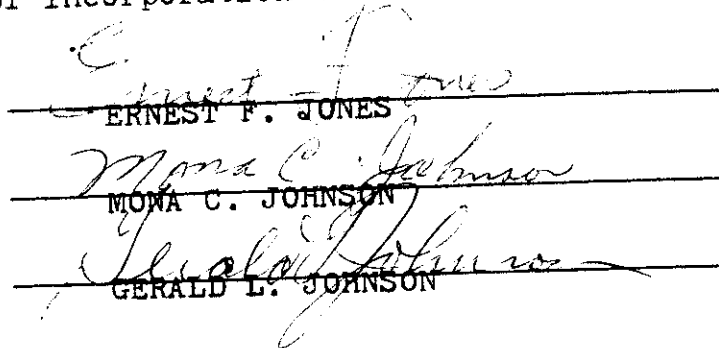 of Incorporation
Ernest F Jones
ERNEST F. JONES
Mona C. Johnson
MONA C. JOHNSON
Gerald L Johnson
GERALD L. JOHNSON